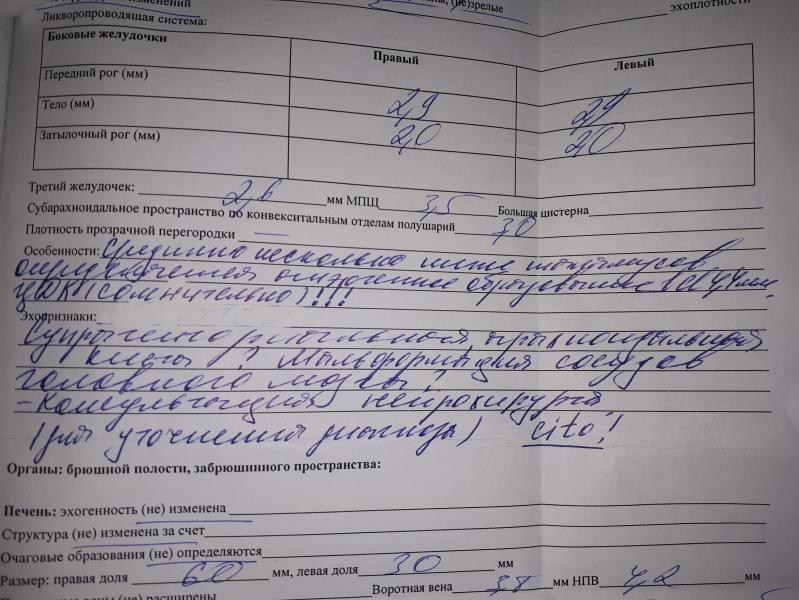 изменений
(не)зрелые
эхоплотности
Ликворопроводящая система:
Боковые желудочки Правый Левый
Передний рог (мм)
Тело (мм) 2,9 2,9
Затылочный рог (мм) 2,0 2,0
Третий желудочек: 2,6 мм МПЩ 3,5 Большая цистерна
Субарахноидальное пространство по конвекситальным отделам полушарий 3,0
Плотность прозрачной перегородки
Особенности: Срединно несколько ниже
определяется образование d 4,4мм,
ЦДК (сомнительно)!!!
Эхопризнаки:
Супрацеребеллярной, арахноидальной
кисты? Мальформация сосудов
головного мозга?
- Консультация нейрохирурга
(для уточнения диагноза) cito!
Органы: брюшной полости, забрюшинного пространства:
Печень: эхогенность (не) изменена
Структура (не) изменена за счет
Очаговые образования (не) определяются
Размер: правая доля 60 мм, левая доля 30 мм
вены (не) расширены Воротная вена 3,8 мм НПВ 4,2 мм